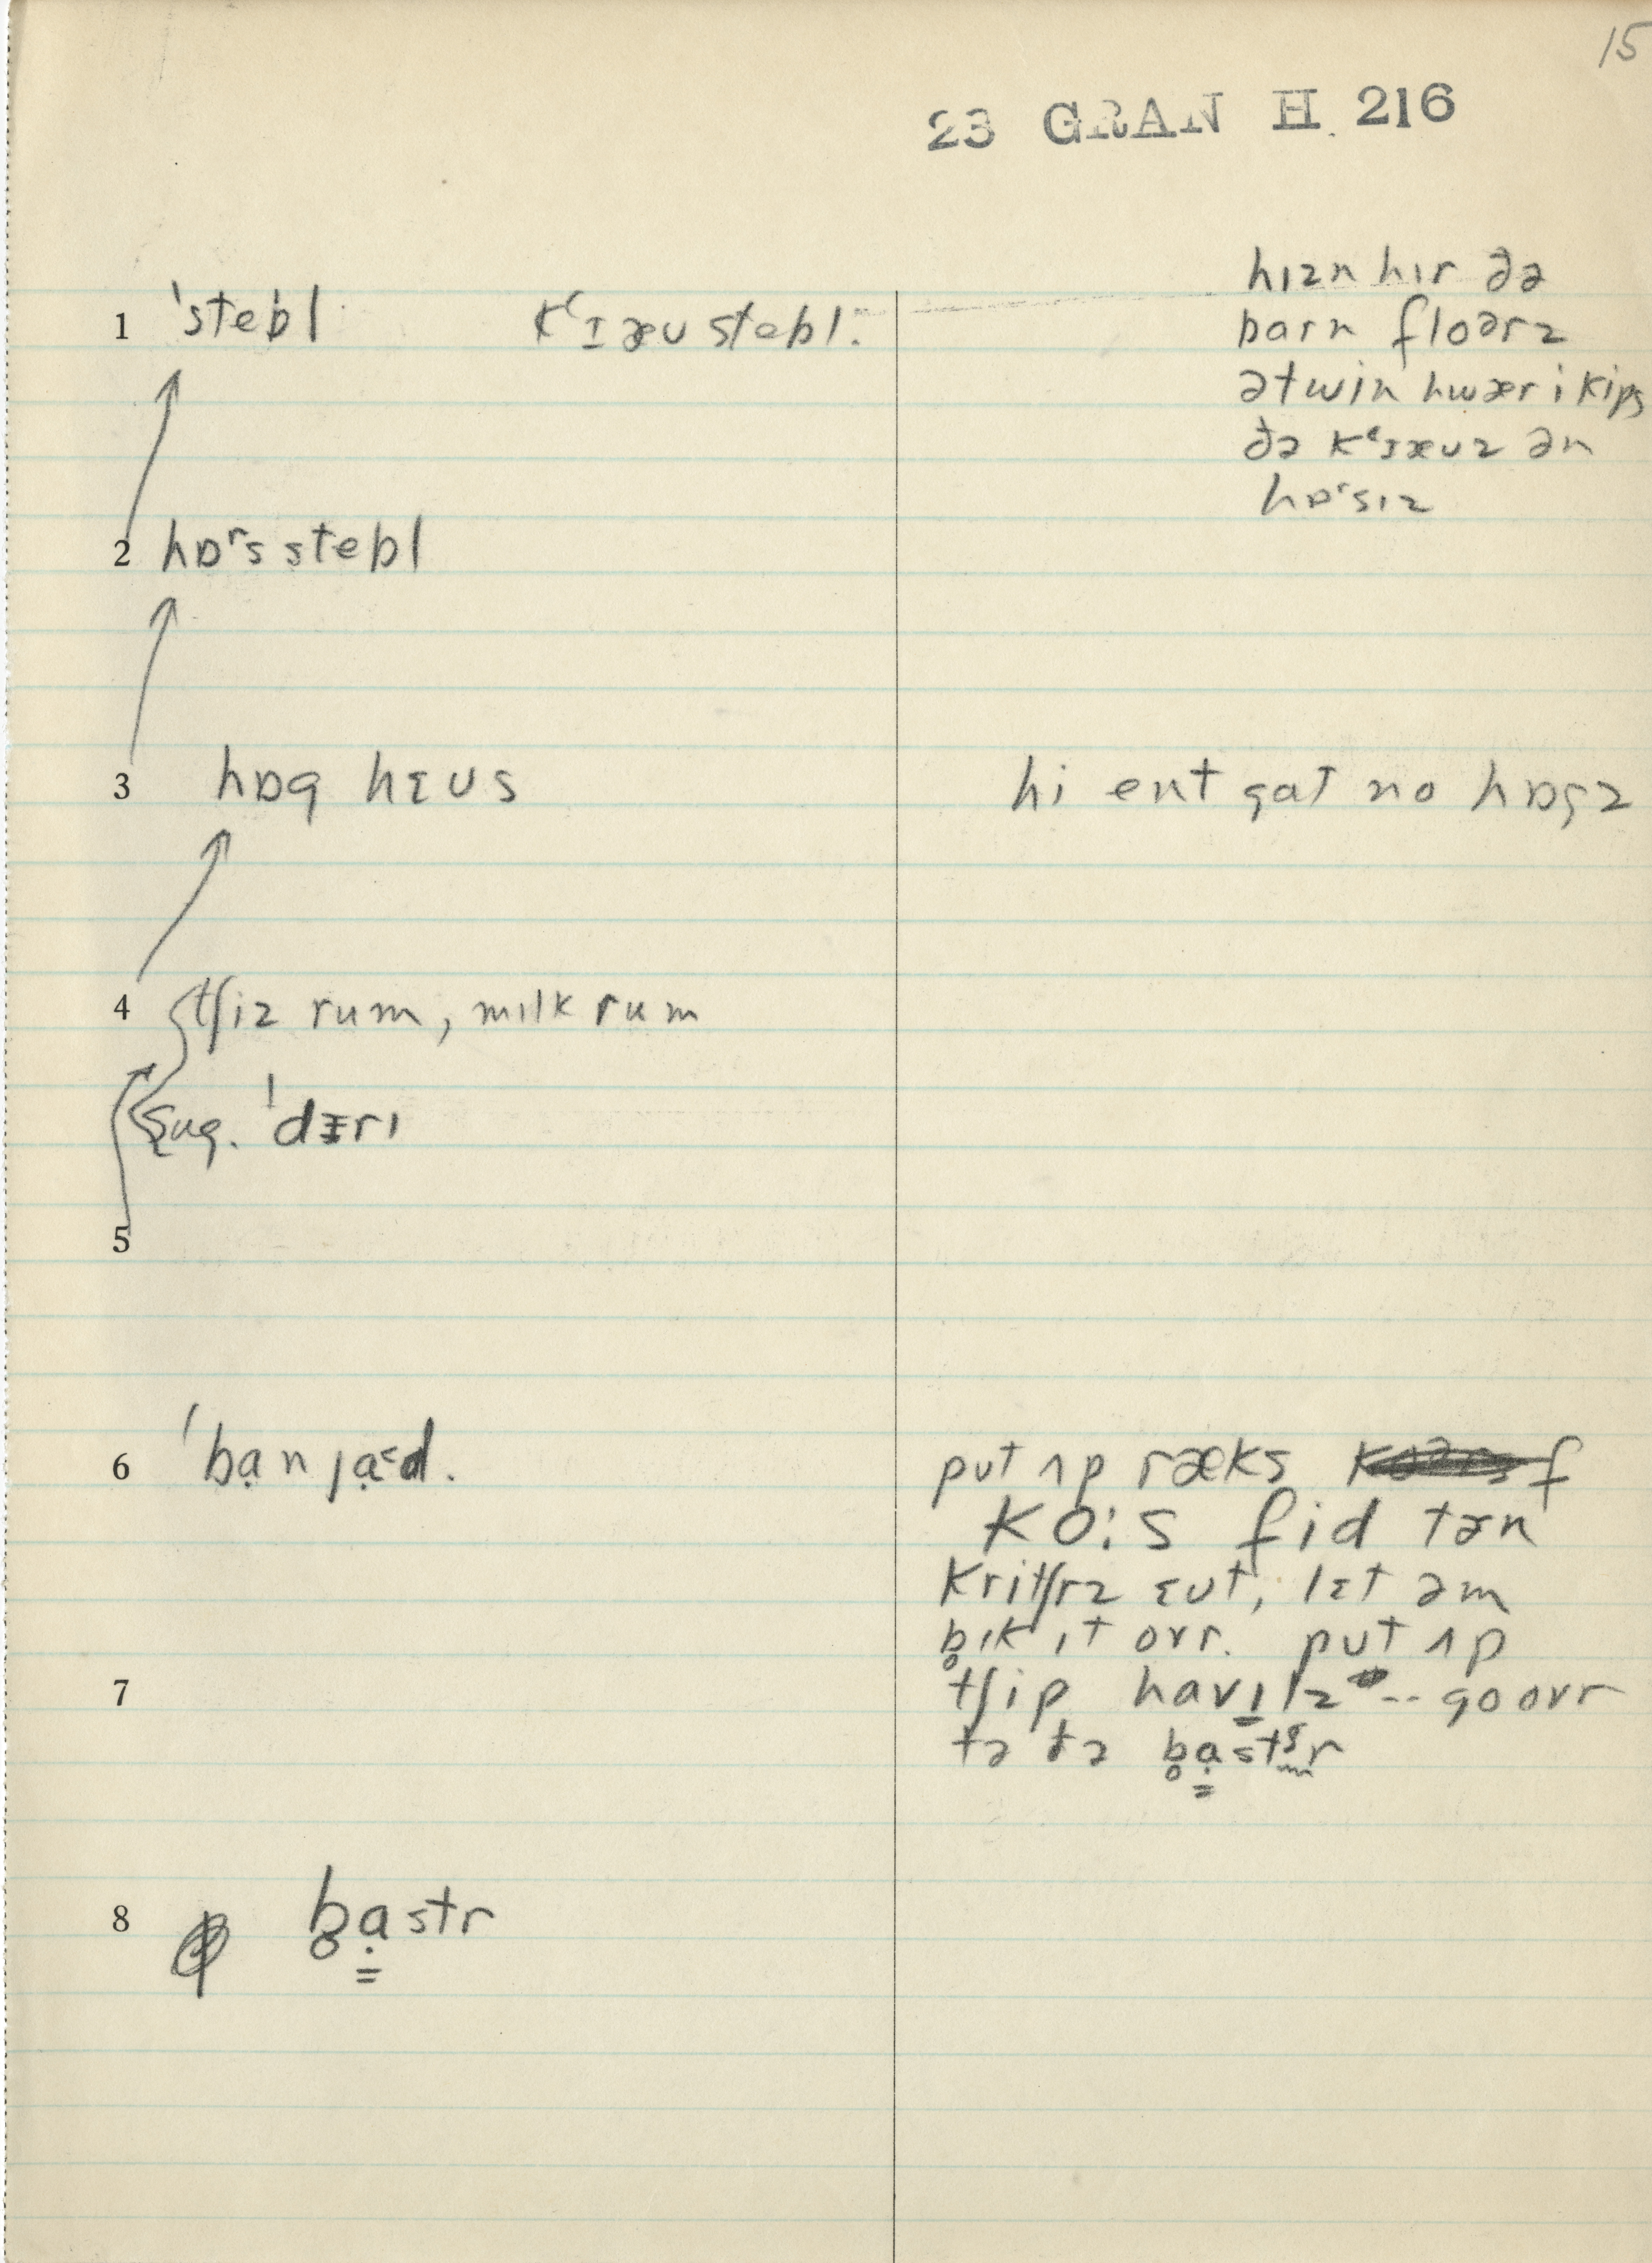 15
23 GRAN H. 216
1 ˈstebl kʻɪæʊ stebl.
hɪzn hɪr ðə
barn floərz
ətwin hwær i kips
ðə kʻɪæʊz ən
hɒʳsɪz
2 hɒʳs stebl
3 hɒg hɛʊs
hi ent gat no hɒgz
4 tʃiz rum, mɪlk rum
sug. ˈdɛrɪ
5
6 ˈbạn jạ˂d.
put ʌp ræks f
kɒ:s fid tɚn
kritʃrz ɛut, lɛt əm
b̥ɪk ɪt ovr. put ʌp
7 tʃip havɪ̱lz -- go ovr
tə ðə b̥ạ̳stər
8 b̥ạ̳str